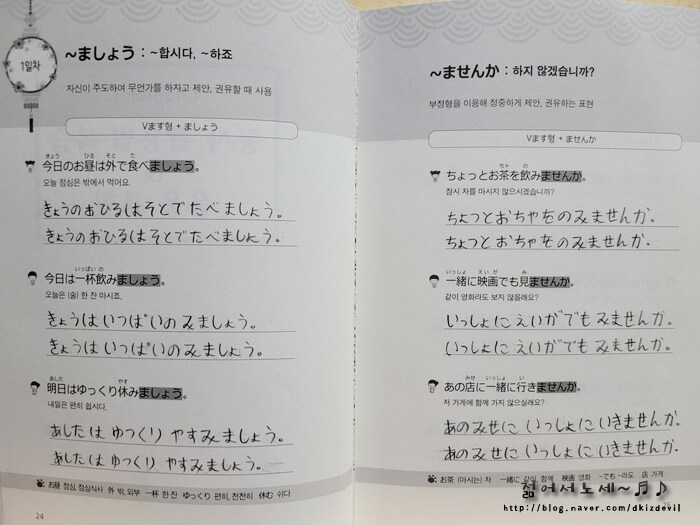 1일차
~ましょう : ~합시다, ~하죠
자신이 주도하여 무언가를 하자고 제안, 권유할 때 사용
Vます형 + ましょう
きょう ひる そと た
今日のお昼は外で食べましょう。
오늘 점심은 밖에서 먹어요.
きょうのおひるはそとでたべましょう。
きょうのおひるはそとでたべましょう。
いっぱい の
今日は一杯飲みましょう。
오늘은 (술) 한 잔 마시죠.
きょうはいっぱいのみましょう。
きょうはいっぱいのみましょう。
あした やす
明日はゆっくり休みましょう。
내일은 편히 쉽시다.
あしたは ゆっくり やすみましょう。
あしたは ゆっくり やすみましょう。
お昼 점심, 점심식사 外 밖, 외부 一杯 한 잔 ゆっくり 편히, 천천히 休む 쉬다
24
~ませんか : 하지 않겠습니까?
부정형을 이용해 정중하게 제안, 권유하는 표현
Vます형 + ませんか
ちゃ の
ちょっとお茶を飲みませんか。
잠시 차를 마시지 않으시겠습니까?
ちょっとおちゃをのみませんか.
ちょっとおちゃをのみませんか.
いっしょ えいが み
一緒に映画でも見ませんか。
같이 영화라도 보지 않을래요?
いっしょにえいがでもみませんか.
いっしょにえいがでもみませんか.
みせ いっしょ い
あの店に一緒に行きませんか。
저 가게에 함께 가지 않으실래요?
あのみせに いっしょに いきませんか.
あのみせに いっしょに いきませんか.
お茶 (마시는) 차 一緒に 같이, 함께 映画 영화 ~でも ~라도 店 가게
25
젊어서노세~♬♪
http://blog.naver.com/dkizdevil